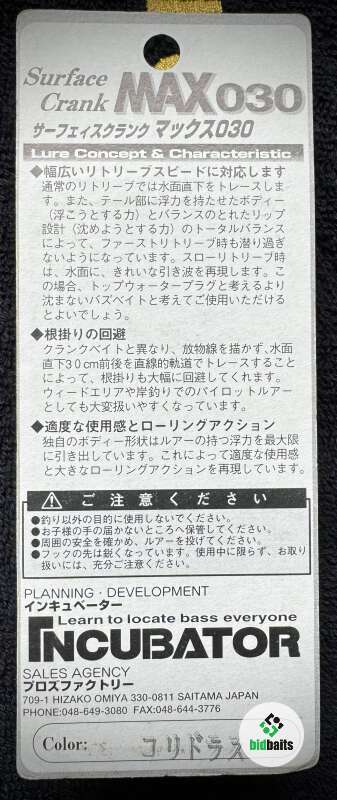 Surface
Crank MAX030
サーフェィスクランク マックス030
Lure Concept & Characteristic
◆幅広いリトリーブスピードに対応します
通常のリトリーブでは水面直下をトレースしま
す。また、テール部に浮力を持たせたボディー
（浮こうとする力）とバランスのとれたリップ
設計（沈めようとする力）のトータルバランス
によって、ファーストリトリーブ時も潜り過ぎ
ないようになっています。スローリトリーブ時
は、水面に、きれいな引き波を再現します。こ
の場合、トップウォータープラグと考えるより
沈まないバズベイトと考えてご使用いただける
とよいでしょう。
◆根掛りの回避
クランクベイトと異なり、放物線を描かず、水面
直下30cm前後を直線的軌道でトレースすること
によって、根掛りも大幅に回避してくれます。
ウィードエリアや岸釣りでのパイロットルアー
としても大変扱いやすくなっています。
◆適度な使用感とローリングアクション
独自のボディー形状はルアーの持つ浮力を最大限
に引き出しています。これによって適度な使用感
と大きなローリングアクションを再現しています。
ご注意ください
●釣り以外の目的に使用しないでください。
●お子様の手の届かないところへ保管してください。
●周囲の安全を確かめ、ルアーを投げてください。
●フックの先は鋭くなっています。使用中に限らず、お取り
扱いには、充分ご注意ください。
PLANNING・DEVELOPMENT
インキュベーター
Learn to locate bass everyone
INCUBATOR
SALES AGENCY
プロズファクトリー
709-1 HIZAKO OMIYA 330-0811 SAITAMA JAPAN
PHONE:048-649-3080 FAX:048-644-3776
Color: コリドラス
bidbaits